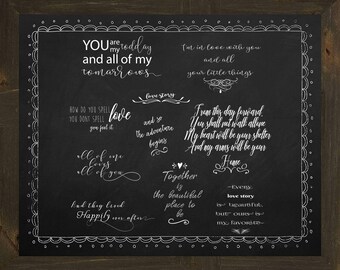 YOU are my todday
and all of my
tomarrows
I'm in love with you
and all
your little things
love story
HOW DO YOU SPELL
love
YOU DON'T SPELL
you feel it
and so
the adventure
begins
From this day forward,
You shall not walk allone
My heart will be your shelter
And my arms will be your
Home
all of me
loves
all of you
Together
is
the beautiful
place to
be
Every
love story
is beautiful,
but ours is
my favorite
And they lived
Happily ever after